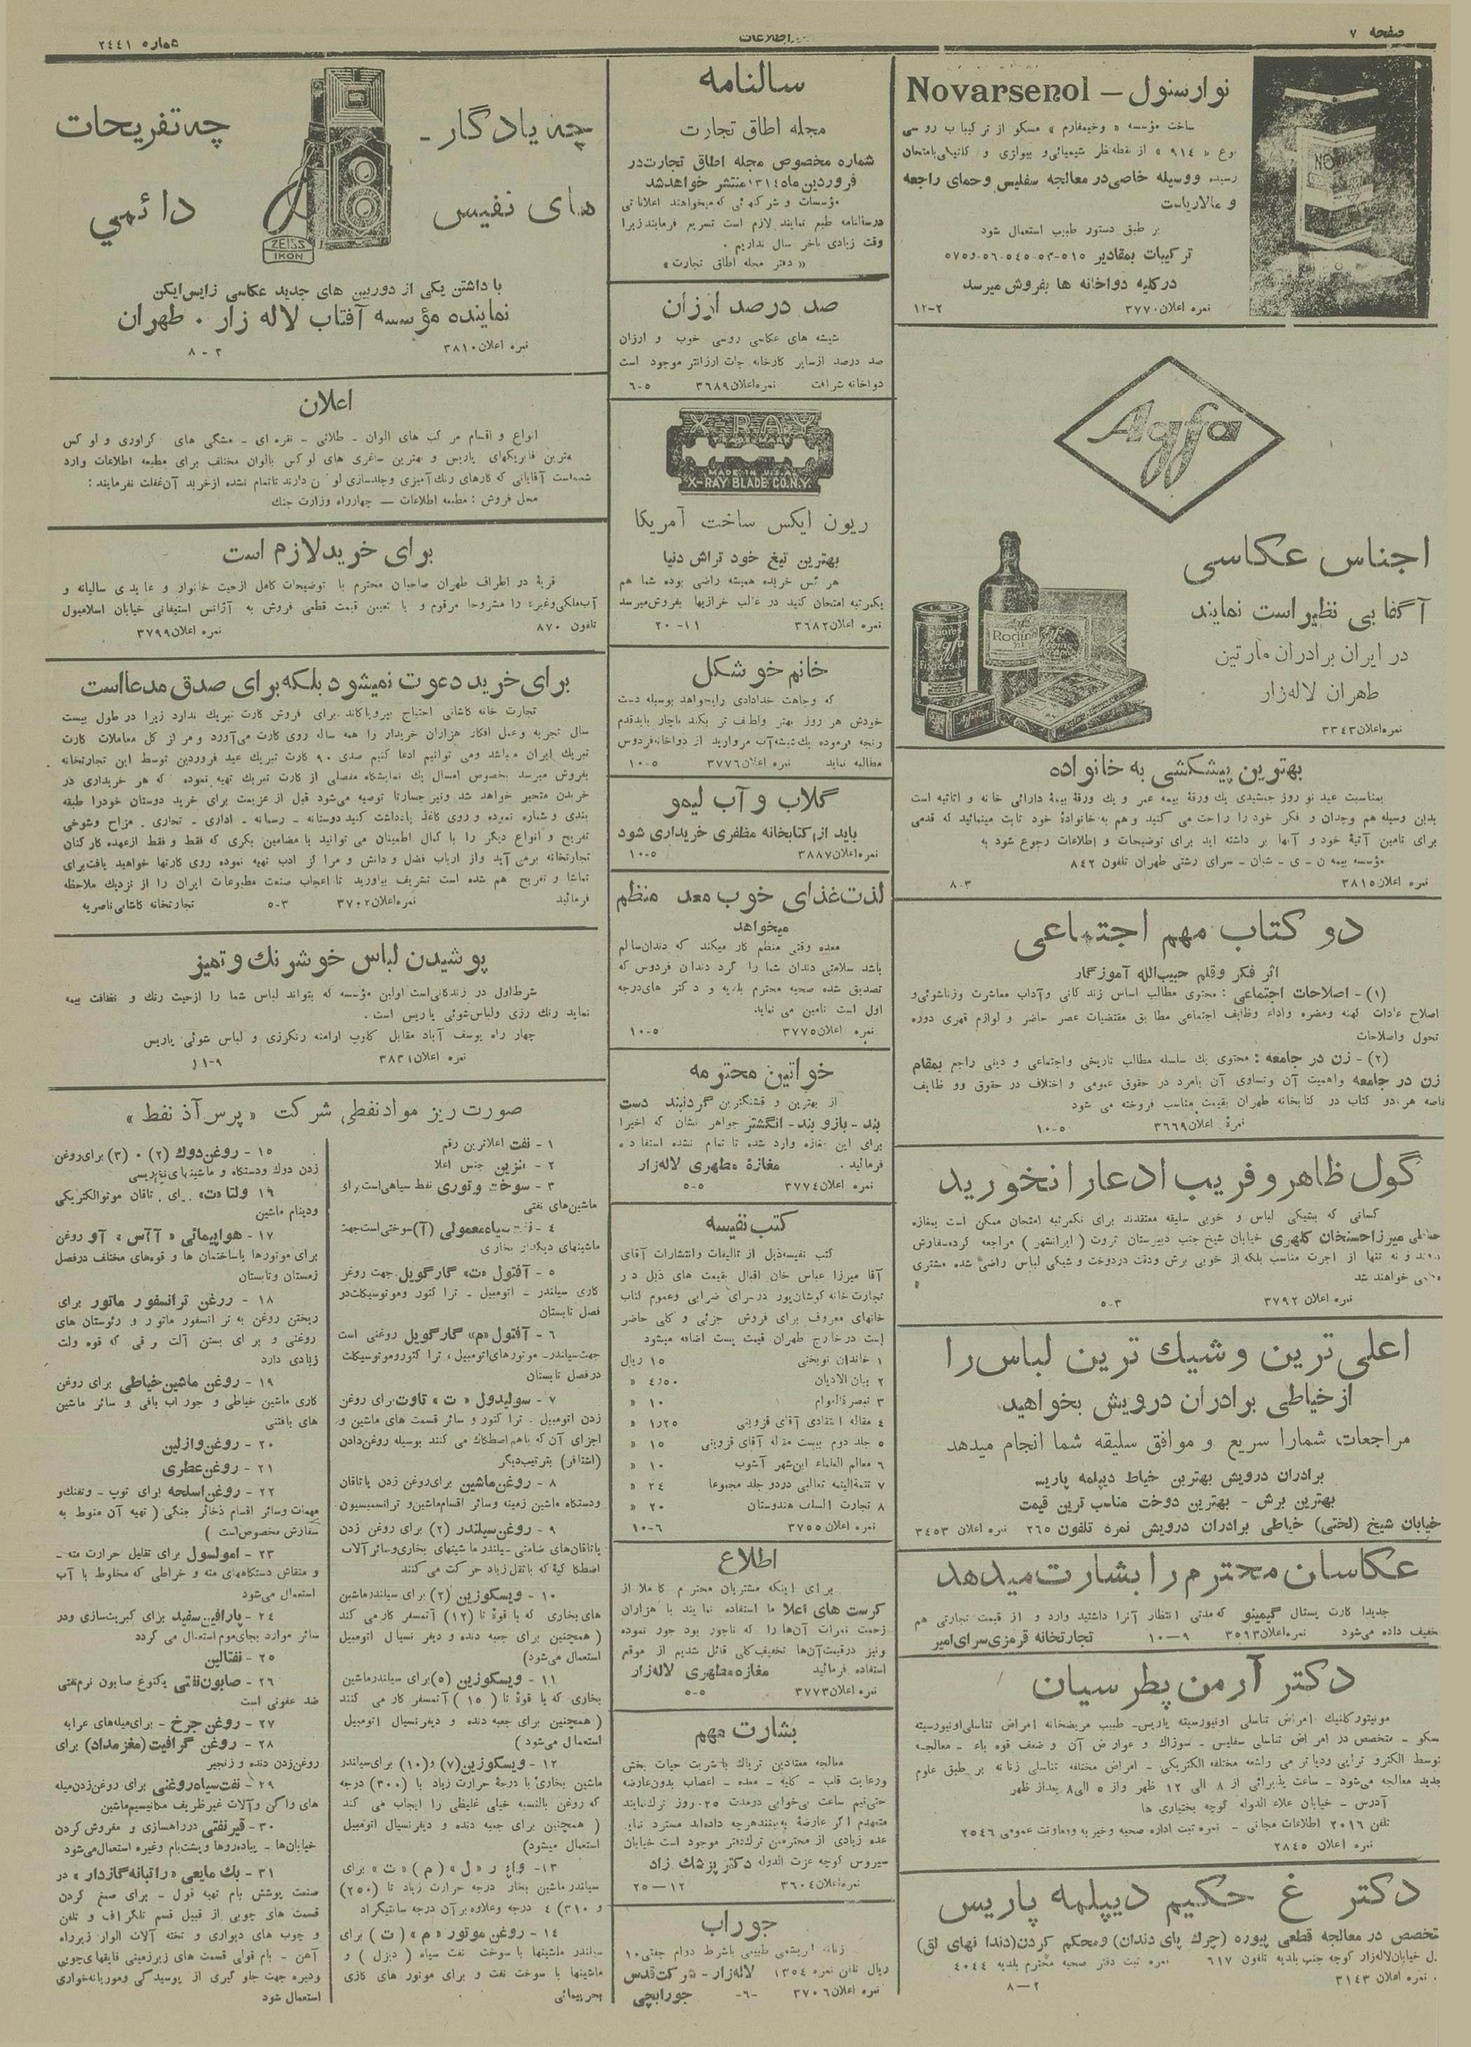 صفحه ۷
اطلاعات
شماره ۲٤٤۱
نوارسنول — Novarsenol
ساخت مؤسسه « وخیمفارم » مسکو از ترکیبات روسی
نوع « ۹۱٤ » از نقطه نظر شیمیائی و بیولژی و کلنیکی بامتحان
رسیده ووسیله خاصی در معالجه سفلیس وحمای راجعه
و مالاریاست
بر طبق دستور طبیب استعمال شود
درکلیه دواخانه ها بفروش میرسد
نمره اعلان ۳۷۷۰
۱۲-۲
Agfa
اجناس عکاسی
آگفا بی نظیر است نمایند
در ایران برادران مارتین
طهران لاله زار
نمره اعلان ۳۳٤۳
بهترین پیشکشی به خانواده
بمناسبت عید نوروز جمشیدی یك ورقه بیمه عمر و یك ورقهٔ بیمهٔ دارائی خانه و اثاثیه است
بدین وسیله هم وجدان و فکر خود را راحت می کنید وهم به خانوادهٔ خود ثابت مینمائید که قدمی
برای تامین آتیهٔ خود و آنها بر داشته اید برای توضیحات و اطلاعات رجوع شود به
سرای رشتی طهران تلفون ۸٤۲
نمره اعلان ۳۸۱۵
۸-۳
دو کتاب مهم اجتماعی
اثر فکر وقلم حبیب‌الله آموزگار
(۱) - اصلاحات اجتماعی : محتوی مطالب اساس زندگانی وآداب معاشرت وزناشوئی و
اصلاح عادات کهنه ومضره واداء وظایف اجتماعی مطابق مقتضیات عصر حاضر و لوازم قهری دوره
تحول واصلاحات
(۲) - زن در جامعه : محتوی یك سلسله مطالب تاریخی واجتماعی و دینی راجع بمقام
زن در جامعه واهمیت آن وتساوی آن بامرد در حقوق عمومی و اختلاف در حقوق و وظایف
خاصه هر دو کتاب در کتابخانه طهران بقیمت مناسب فروخته می شود
نمرهٔ اعلان ۳٦٦۹
۱۰-۵
گول ظاهر و فریب ادعا را نخورید
کسانی که بشیکی لباس و خوبی سلیقه معتقدند برای یکمرتبه امتحان ممکن است بمغازه
خیاطی میرزا حسنخان کلهری خیابان شیخ جنب دبیرستان ثروت ( ایرانشهر ) مراجعه کرده سفارش
دهند و نه تنها از اجرت مناسب بلکه از خوبی برش ودقت دردوخت و شیکی لباس راضی شده مشتری
دائمی خواهند شد
نمره اعلان ۳۷۹۲
۵-۳
اعلی ترین و شیك ترین لباس را
از خیاطی برادران درویش بخواهید
مراجعات شمارا سریع و موافق سلیقه شما انجام میدهد
برادران درویش بهترین خیاط دیپلمه پاریس
بهترین برش - بهترین دوخت مناسب ترین قیمت
خیابان شیخ (لختی) خیاطی برادران درویش نمره تلفون ۲٦۵ نمره اعلان ۳٤۵۳
عکاسان محترم را بشارت میدهد
جدیدا کارت پستال گیمینو که مدتی انتظار آنرا داشتید وارد و از قیمت تجارتی هم
تخفیف داده می‌شود نمره اعلان ۳۵۹۳ ۱۰-۹ تجارتخانه قرمزی سرای امیر
دکتر آرمن پطرسیان
مونیتور کلنیك امراض تناسلی اونیورسیته پاریس- طبیب مریضخانه امراض تناسلی اونیورسیته
مسکو - متخصص در امراض تناسلی سفلیس - سوزاك و عوارض آن و ضعف قوه باء - معالجه
جدید معالجه می‌شود - ساعت پذیرائی از ۸ الی ۱۲ ظهر و از ۵ الی ۸ بعداز ظهر
آدرس - خیابان علاء الدوله کوچه بختیاری ها
تلفن ۲۰۱٦ اطلاعات مجانی - نمره ثبت اداره صحیه وخیریه ومعاونت عمومی ۲۵٤٦
نمره اعلان ۲۸٤۵
دکتر غ حکیم دیپلمه پاریس
متخصص در معالجه قطعی پیوره (چرك پای دندان) ومحکم کردن (دندانهای لق)
خیابان لاله زار کوچه جنب بلدیه تلفون ٦۱۷ نمره ثبت دفتر صحیه محترم بلدیه ٤۰٤٤
نمره اعلان ۳۱٤۳
۸-۲
سالنامه
مجله اطاق تجارت
شماره مخصوص مجله اطاق تجارت در
فروردین ماه ۱۳۱٤ منتشر خواهد شد
مؤسسات و شرکتهائی که میخواهند اعلاناتی
درسالنامه طبع نمایند لازم است تسریع فرمایند زیرا
وقت زیادی بآخر سال نداریم .
« دفتر مجله اطاق تجارت »
صد درصد ارزان
شیشه های عکاسی روسی خوب و ارزان
صد درصد از سایر کارخانه جات ارزانتر موجود است
دواخانه شرافت نمره اعلان ۳٦۸۹ ٦-۵
X-RAY
TRADE MARK
MADE IN U.S.A.
X-RAY BLADE CO. N.Y.
ریون ایکس ساخت آمریکا
بهترین تیغ خود تراش دنیا
هر کس خریده همیشه راضی بوده شما هم
یکمرتبه امتحان کنید در غالب خرازیها بفروش میرسد
نمره اعلان ۳٦۸۲ ۲۰-۱۱
خانم خوشگل
که وجاهت خدادادی رابخواهد بوسیله دست
خودش هر روز بهتر ولطیف تر بکند ناچار بایدقدم
رنجه فرموده یك شیشه آب مروارید از دواخانه فردوس
مطالبه نماید نمره اعلان ۳۷۷٦ ۱۰-۵
گلاب و آب لیمو
باید از کتابخانه مظفری خریداری شود
نمره اعلان ۳۸۸۷ ۱۰-۵
لذت غذای خوب معده منظم
میخواهد
معده وقتی منظم کار میکند که دندان سالم
باشد سلامتی دندان شما را گرد دندان فردوس که
تصدیق شده صحیه محترم بلدیه و دکتر های درجه
اول است تامین می نماید
نمره اعلان ۳۷۷۵ ۱۰-۵
خواتین محترمه
از بهترین و قشنگترین گردنبند دست
بند - بازو بند - انگشتر جواهر نشان که اخیرا
برای این مغازه وارد شده تا تمام نشده استفاده
فرمائید . مغازهٔ مطهری لاله‌زار
نمره اعلان ۳۷۷٤ ۵-۵
کتب نفیسه
کتب نفیسه ذیل از تالیفات وانتشارات آقای
آقا میرزا عباس خان اقبال بقیمت های ذیل در
خانهای معروف برای فروش جزئی و کلی حاضر
است در خارج طهران قیمت پست اضافه میشود
۱ خاندان نوبختی ۱۵ ریال
۲ بیان الادیان ٤٫۵۰ «
۳ تبصرةالعوام ۱۰ «
٤ مقاله انتقادی آقای قزوینی ۱٫۲۵ «
۵ جلد دوم بیست مقاله آقای قزوینی ۱۵ «
٦ معالم العلماء ابن شهر آشوب ۱۰ «
۷ تتمةالیتیمه ثعالبی دردو جلد مجموعا ۲٤ «
۸ تجارت السلف هندوشاه ۲۰ «
نمره اعلان ۳۷۵۵ ۱۰-٦
اطلاع
برای اینکه مشتریان محترم کاملا از
کرست های اعلا ما استفاده نمایند با هزاران
زحمت نمرات آن‌ها را که ناجور بود جور نموده
ونیز درقیمت آن‌ها تخفیف کلی قائل شدیم از موقع
استفاده فرمائید مغازه مطهری لاله‌زار
نمره اعلان ۳۷۷۳ ۵-۵
بشارت مهم
معالجه معتادین تریاك باشربت حیات بخش
ورعایت قلب - کلیه - معده - اعصاب بدون عارضه
حتی نیم ساعت بی‌خوابی درمدت ۲۵ روز ترك نمایند
متعهدم اگر عارضهٔ ببینند هرچه داده‌اند مسترد نمایم
عده زیادی از محترمین ترك دفتر موجود است خیابان
سیروس کوچه عزت الدوله دکتر پزشك زاد
نمره اعلان ۳٦۰٤ ۲۵-۱۲
جوراب
زنانه ابریشمی طبیعی باشرط دوام جفتی ۱۰
ریال تلفن نمره ۱۳۵٤ لاله‌زار - شرکت قدس
نمره اعلان ۳۷۰٦ -٦- جورابچی
چه یادگار -
های نفیس
چه تفریحات
دائمی
ZEISS
IKON
با داشتن یکی از دوربین های جدید عکاسی زایس ایکن
نماینده مؤسسه آفتاب لاله زار . طهران
نمره اعلان ۳۸۱۰ ۸-۲
اعلان
انواع و اقسام مرکب های الوان - طلائی - نقره ای - مشکی های گراوری و لوکس
بهترین فابریکهای پاریس و بهترین ساغری های لوکس بالوان مختلف برای مطبعه اطلاعات وارد
شده‌است آقایانی که کارهای رنك آمیزی وجلدسازی لوکس دارند تاتمام نشده ازخرید آن غفلت نفرمایند :
محل فروش : مطبعه اطلاعات — چهارراه وزارت جنك
برای خرید لازم است
قریهٔ در اطراف طهران صاحبان محترم با توضیحات کامل ازحیث خانوار و عایدی سالیانه و
آب‌ملکی‌وغیره را مشروحا مرقوم و با تعیین قیمت قطعی فروش به آژانس استیفانی خیابان اسلامبول
تلفون ۸۷۰ نمره اعلان ۳۷۹۹
برای خرید دعوت نمیشود بلکه برای صدق مدعا است
تجارت خانه کاشانی احتیاج بپروپاکاند برای فروش کارت تبریك ندارد زیرا در طول بیست
سال تجربه وعمل افکار هزاران خریدار را همه ساله روی کارت می‌آورد و مرکز کل معاملات کارت
تبریك ایران میباشد ومی توانیم ادعا کنیم صدی ۹۰ کارت تبریك عید فروردین توسط این تجارتخانه
بفروش میرسد بخصوص امسال یك نمایشگاه مفصلی از کارت تبریك تهیه نموده که هر خریداری در
خریدن متحیر خواهد شد ونیز جسارتا توصیه می‌شود قبل از عزیمت برای خرید دوستان خودرا طبقه
بندی و شماره نموده و روی کاغذ یادداشت کنید دوستانه - رسمانه - اداری - تجاری . مزاح وشوخی
تفریح و انواع دیگر را با کمال اطمینان می توانید با مضامین بکری که فقط و فقط ازعهده کارکنان
تجارتخانه برمی آید واز ارباب فضل و دانش و مرکز ادب تهیه نموده روی کارتها خواهید یافت برای
تماشا و تفریح هم شده است تشریف بیاورید تا اعجاب صنعت مطبوعات ایران را از نزدیك ملاحظه
فرمائید نمره اعلان ۳۷۰۲ ۵-۳ تجارتخانه کاشانی ناصریه
پوشیدن لباس خوشرنك و تمیز
شرط اول در زندگانی‌است اولین مؤسسه که بتواند لباس شما را ازحیث رنك و نظافت بیمه
نماید رنك رزی ولباس‌شوئی پاریس است .
چهار راه یوسف آباد مقابل کلوب ارامنه رنگرزی و لباس شوئی پاریس
نمره اعلان ۳۸۳۱
صورت ریز مواد نفطی شرکت « پرس آذ نفط »
۱ - نفت اعلاترین رقم
۲ - بنزین جنس اعلا
۳ - سوخت وتوری نفط سیاهی است برای
ماشین‌های نفتی
٤ - نفت سیاه معمولی (آ) سوختی است جهت
ماشینهای دیگدار بخاری
۵ - آفتول «ت» گارگویل جهت روغن
کاری سیلندر - اتومبیل - تراکتور وموتوسیکلت در
فصل تابستان
٦ - آفتول «م» گارگویل روغنی است
جهت سیلندر- موتورهای اتومبیل ، تراکتور وموتوسیکلت
در فصل تابستان
۷ - سولیدول « ت » تاوت برای روغن
زدن اتومبیل . تراکتور و سائر قسمت های ماشین و
اجزای آن که باهم اصطکاك می کنند بوسیله روغن‌دادن
(اشتافر) بترتیب‌دیگر
۸ - روغن ماشین برای روغن زدن یاتاقان
ودستگاه ماشین زمینه وسائر اقسام ماشین و ترانسمیسیون
۹ - روغن سیلندر (۲) برای روغن زدن
اصطکاکیهٔ که باثقل زیاد حرکت می کنند
۱۰ - ویسکوزین (۲) برای سیلندر ماشین
های بخاری که با قوهٔ تا (۱۲) آتمسفر کار می کند
( همچنین برای جعبه دنده و دیفرنسیال اتومبیل
استعمال می‌شود)
۱۱ - ویسکوزین (۵) برای سیلندر ماشین
بخاری که با قوهٔ تا ( ۱۵ ) آتمسفر کار می کنند
( همچنین برای جعبه دنده و دیفرنسیال اتومبیل
استعمال می‌شود )
۱۲ - ویسکوزین (۷) و (۱۰) برای سیلندر
ماشین بخاری با درجهٔ حرارت زیاد تا (۳۰۰) درجه
که روغن بالنسبه خیلی غلیظی را ایجاب می کند
( همچنین برای جعبه دنده و دیفرنسیال اتومبیل
استعمال میشود)
۱۳ - واپر «ل» ( م ) «ت» برای
سیلندر ماشین بخار درجه حرارت زیاد تا (۲۵۰)
و ۳۱۰) ٤ درجه وعلاوه بر آن درجه سانتیگراد
۱٤ - روغن موتور «م» (ت) برای
سیلندر ماشینها با سوخت نفت سیاه ( دیزل ) و
ماشینها با سوخت نفت و برای موتور های گازی
بحرپیمائی
۱۵ - روغن دوك (۲) . (۳) برای روغن
زدن دوك ودستگاه و ماشینهای نخ‌ریسی
۱٦ ولتا «ت» برای یاتاقان موتوالکتریکی
ودینام ماشین
۱۷ - هواپیمائی « آآس » آو روغن
برای موتورها باساختمان ها و قوه‌های مختلف در فصل
زمستان وتابستان
۱۸ - روغن ترانسفورماتور برای
ریختن روغن به ترانسفورماتور و رئوستان های
روغنی و برای بستن آلت برقی که قوه ولت
زیادی دارد
۱۹ - روغن ماشین خیاطی برای روغن
کاری ماشین خیاطی و جوراب بافی و سائر ماشین
های بافتنی
۲۰ - روغن وازلین
۲۱ - روغن عطری
۲۲ - روغن اسلحه برای توپ - وتفنك و
مهمات وسائر اقسام ذخائر جنگی ( تهیه آن منوط به
سفارش مخصوص است )
۲۳ - امولسول برای تقلیل حرارت مته -
و منقاش دستگاههای مته و خراطی که مخلوط با آب
استعمال می‌شود
۲٤ - پارافین سفید برای کبریت‌سازی ودر
سائر موارد بجای‌موم استعمال می گردد
۲۵ - نفتالین
۲٦ - صابون نفتی یکنوع صابون نرم نفتی
ضد عفونی است
۲۷ - روغن چرخ - برای میله‌های عرابه
۲۸ - روغن گرافیت (مغز مداد) برای
روغن‌زدن دنده و زنجیر
۲۹ - نفت سیاه روغنی برای روغن‌زدن میله
های واگن وآلات غیر ظریف مکانیسم ماشین
۳۰ - قیر نفتی درراهسازی و مفروش کردن
خیابان‌ها - پیاده‌روها وپشت‌بام وغیره استعمال می‌شود
۳۱ - بك مایعی «راتبانه گازدار» در
صنعت پوشش بام تهیه قول - برای صمغ کردن
قسمت های چوبی از قبیل قسم تلگراف و تلفن
و چوب های دیواری و تخته آلات الوار زیرراه
آهن - بام قولی قسمت های زیرزمینی قایقهای چوبی
وغیره جهت جلوگیری از پوسیدگی وموریانه خواری
استعمال شود